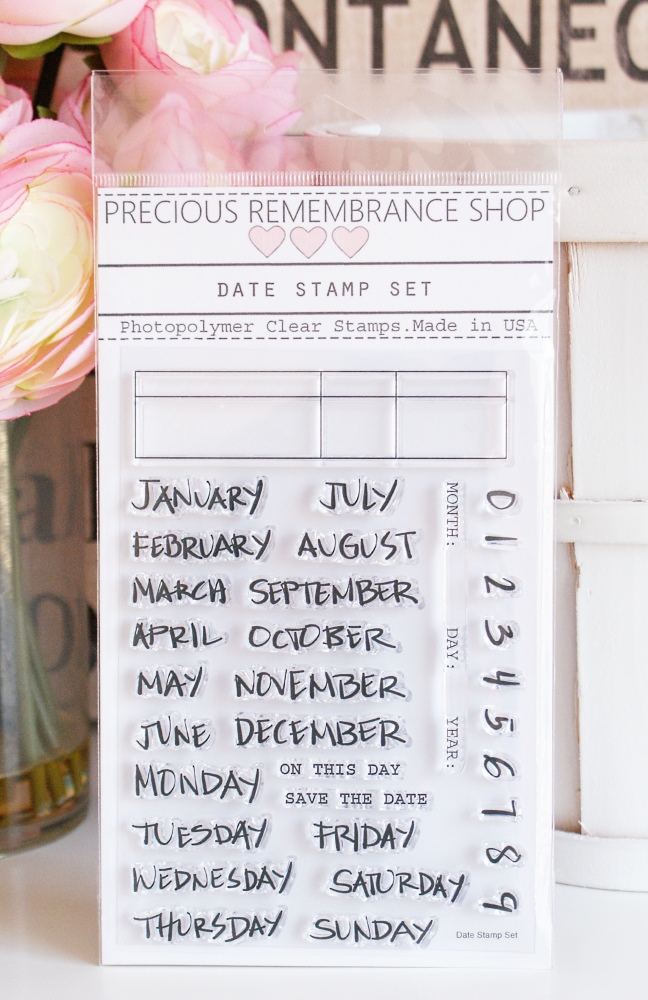 ONTANEO
PRECIOUS REMEMBRANCE SHOP
DATE STAMP SET
Photopolymer Clear Stamps.Made in USA
JANUARY JULY
FEBRUARY AUGUST
MARCH SEPTEMBER
APRIL OCTOBER
MAY NOVEMBER
JUNE DECEMBER
MONDAY
ON THIS DAY
SAVE THE DATE
TUESDAY FRIDAY
WEDNESDAY SATURDAY
THURSDAY SUNDAY
MONTH: DAY: YEAR:
0 1 2 3 4 5 6 7 8 9
Date Stamp Set